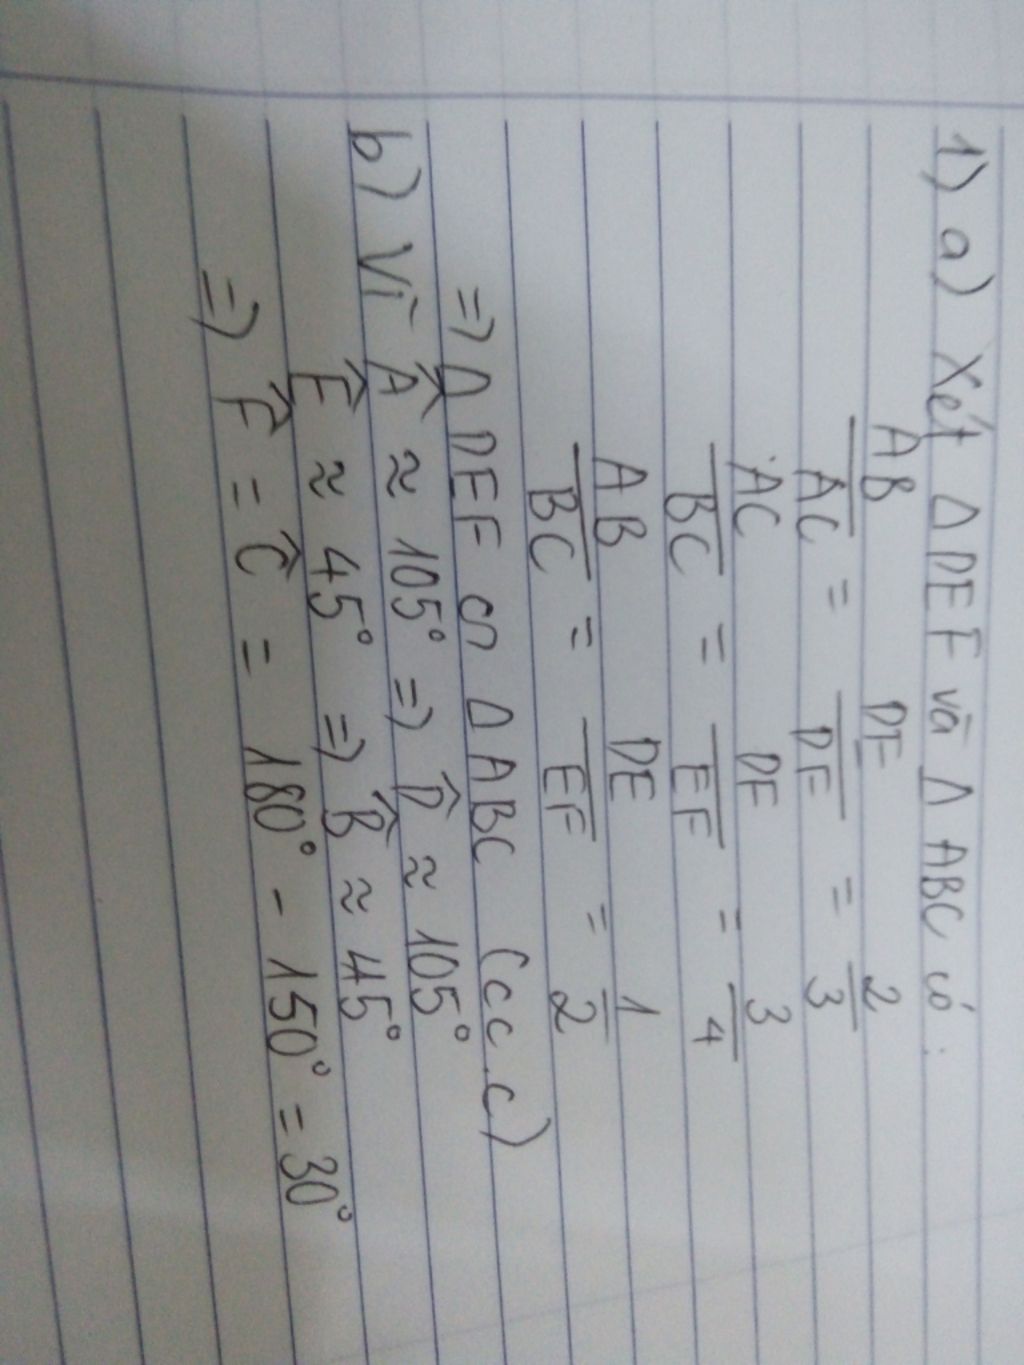 1) a) Xét Δ DEF và Δ ABC có:
AB/AC = DE/DF = 2/3
AC/BC = DF/EF = 3/4
AB/BC = DE/EF = 1/2
=> Δ DEF ∽ Δ ABC (c.c.c)
b) Vì Â ≈ 105° => D̂ ≈ 105°
Ê ≈ 45° => B̂ ≈ 45°
=> F̂ = Ĉ = 180° - 150° = 30°